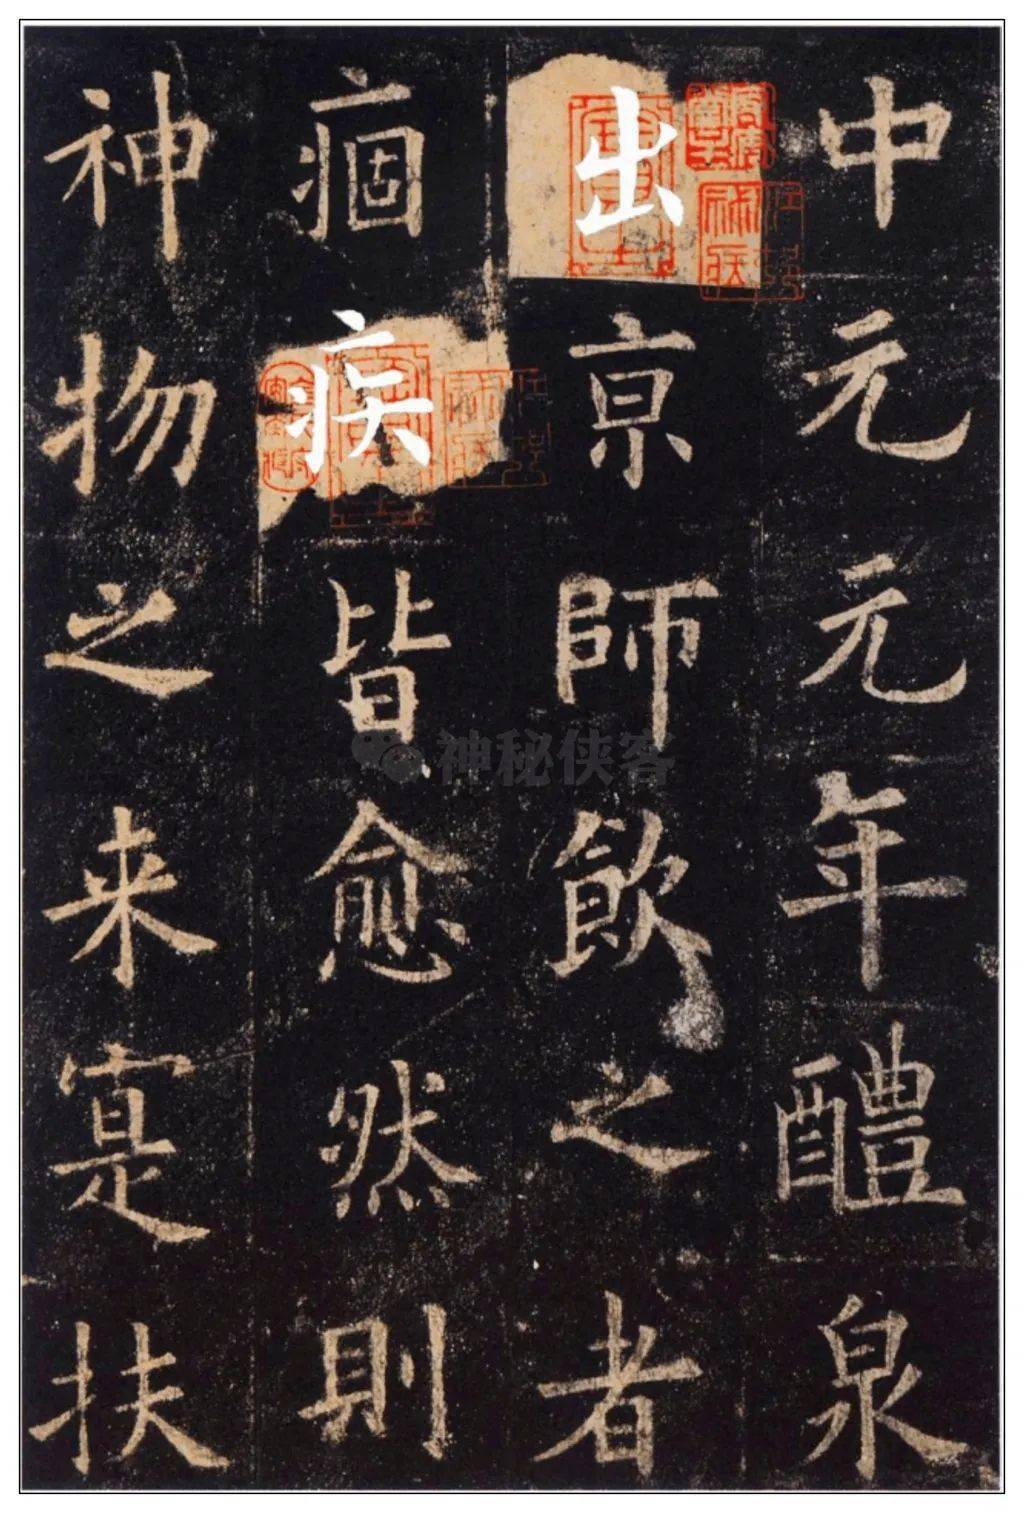 中元元年醴泉
出京師飲之者
痼疾皆愈然則
神物之来寔扶
神秘侠客